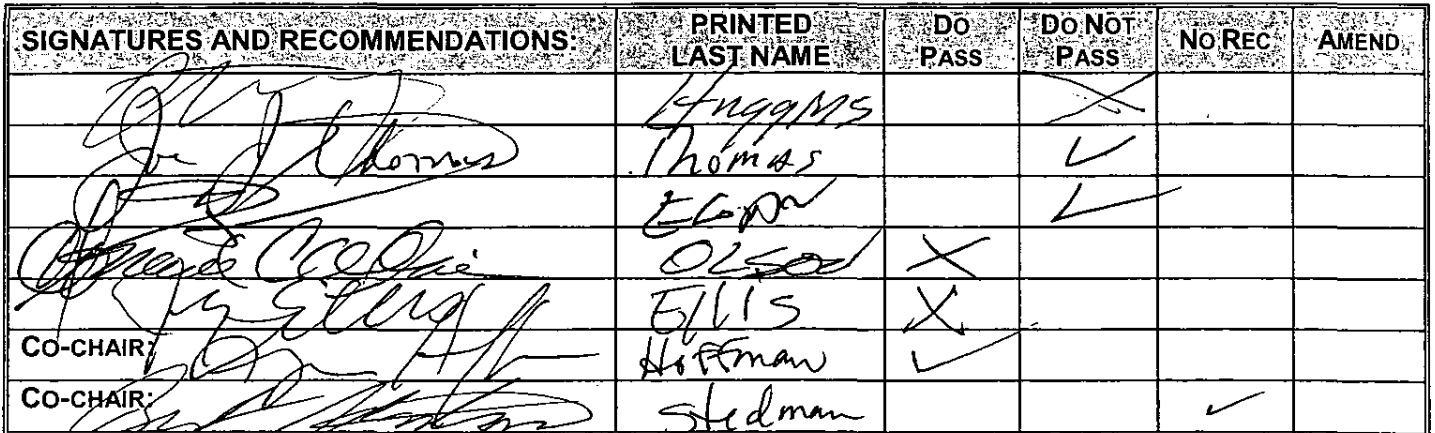 SIGNATURES AND RECOMMENDATIONS: PRINTED LAST NAME DO PASS DO NOT PASS NO REC AMEND
Huggins X
Joe J Thomas Thomas ✓
✓
Olson X
Ellis X
CO-CHAIR: Hoffman ✓
CO-CHAIR: Stedman ✓